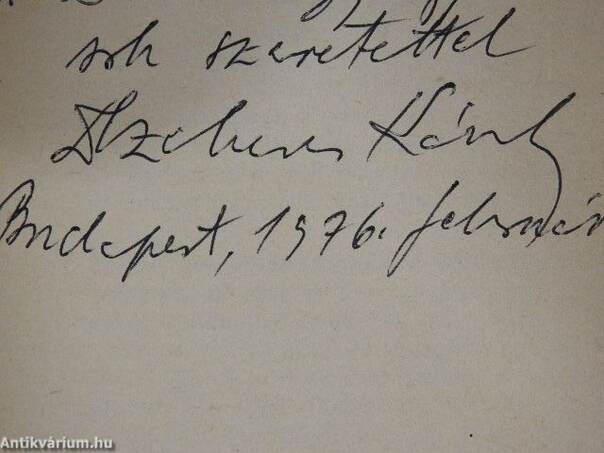 sok szeretettel
Károly
Budapest, 1976. február
Antikvárium.hu